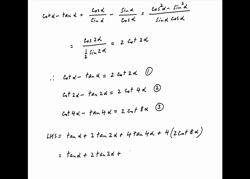 cot α - tan α = cos α / sin α - sin α / cos α = cos²α - sin²α / sin α cos α
= cos 2α / ½ sin 2α = 2 cot 2α
∴ cot α - tan α = 2 cot 2α ①
cot 2α - tan 2α = 2 cot 4α ②
cot 4α - tan 4α = 2 cot 8α ③
LHS = tan α + 2 tan 2α + 4 tan 4α + 4 (2 cot 8α)
= tan α + 2 tan 2α +